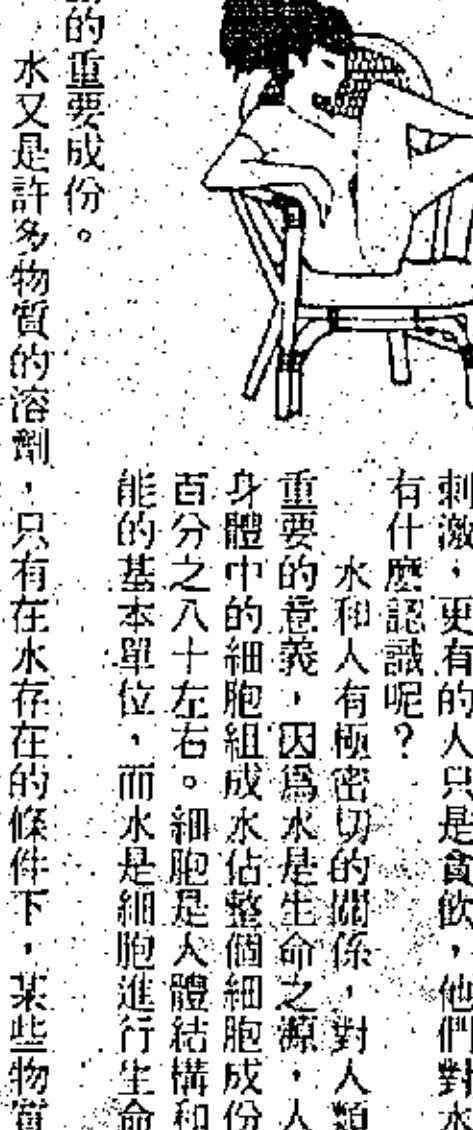 刺激，更有的人只是貪飲，他們對水
有什麼認識呢？
水和人有極密切的關係，對人類
重要的意義，因爲水是生命之源，人
身體中的細胞組成水佔整個細胞成份
百分之八十左右。細胞是人體結構和
能的基本單位，而水是細胞進行生命
的重要成份。
水又是許多物質的溶劑，只有在水存在的條件下，某些物質